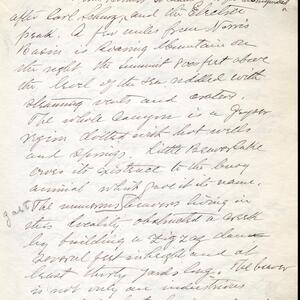 after Carl Schurz, and the Electric
peak. A few miles from Norris
Basin is Roaring Mountain on
the right the summit 800 feet above
the level of the sea riddled with
steaming vents and craters.
The whole Canyon is a geyser
region dotted with hot wells
and springs. Little Beaver Lake
owes its existence to the busy
animal which gave it its name.
The numerous beavers living in
this locality obstructed a creek
by building a zigzag dam
several feet in height and at
least thirty yards long. The beaver
is not only an industrious